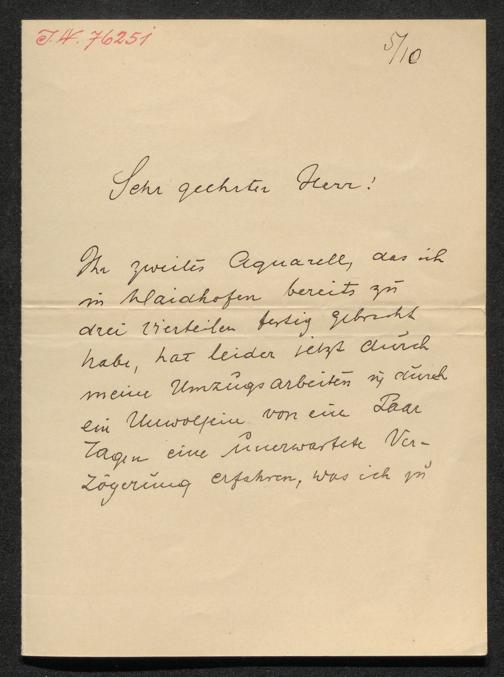 I.N. 76251
5/10
Sehr geehrter Herr!
Ihr zweites Aquarell, das ich
in Waidhofen bereits zu
drei Vierteilen fertig gebracht
habe, hat leider jetzt durch
meine Umzugsarbeiten u durch
ein Unwolsein von ein Paar
Tagen eine unerwartete Ver-
zögerung erfahren, was ich zu